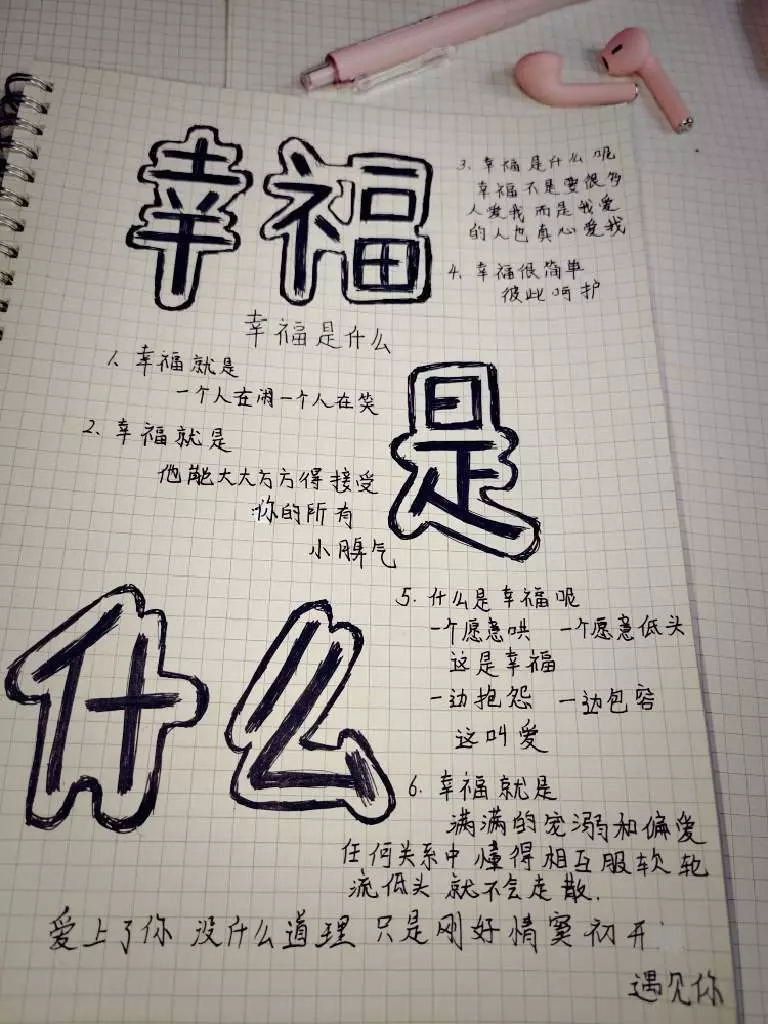 幸福
是
什么
幸福是什么
1. 幸福就是
一个人在闹一个人在笑
2. 幸福就是
他能大大方方得接受
你的所有
小脾气
3. 幸福是什么呢
幸福不是要很多
人爱我而是我爱
的人也真心爱我
4. 幸福很简单
彼此呵护
5. 什么是幸福呢
一个愿意哄 一个愿意低头
这是幸福
一边抱怨 一边包容
这叫爱
6. 幸福就是
满满的宠溺和偏爱
任何关系中懂得相互服软轮
流低头就不会走散.
爱上了你 没什么道理 只是刚好情窦初开
遇见你